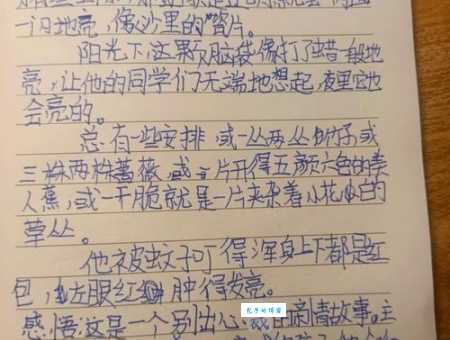 一闪地亮，像沙里的碎片。
阳光下，这颗脑袋像打了蜡一般地
亮，让他的同学们无端地想起，夜里它也
会亮的。
总有一些安排，或一丛两丛竹子，或
三株两株蔷薇，或一片开得五颜六色的美
人蕉，或一干脆就是一片夹杂着小花小白的
草丛。
他被蚊子叮得浑身上下都是红
包，左眼红肿得发亮。
感悟：这是一个别出心裁的亲情故事。主